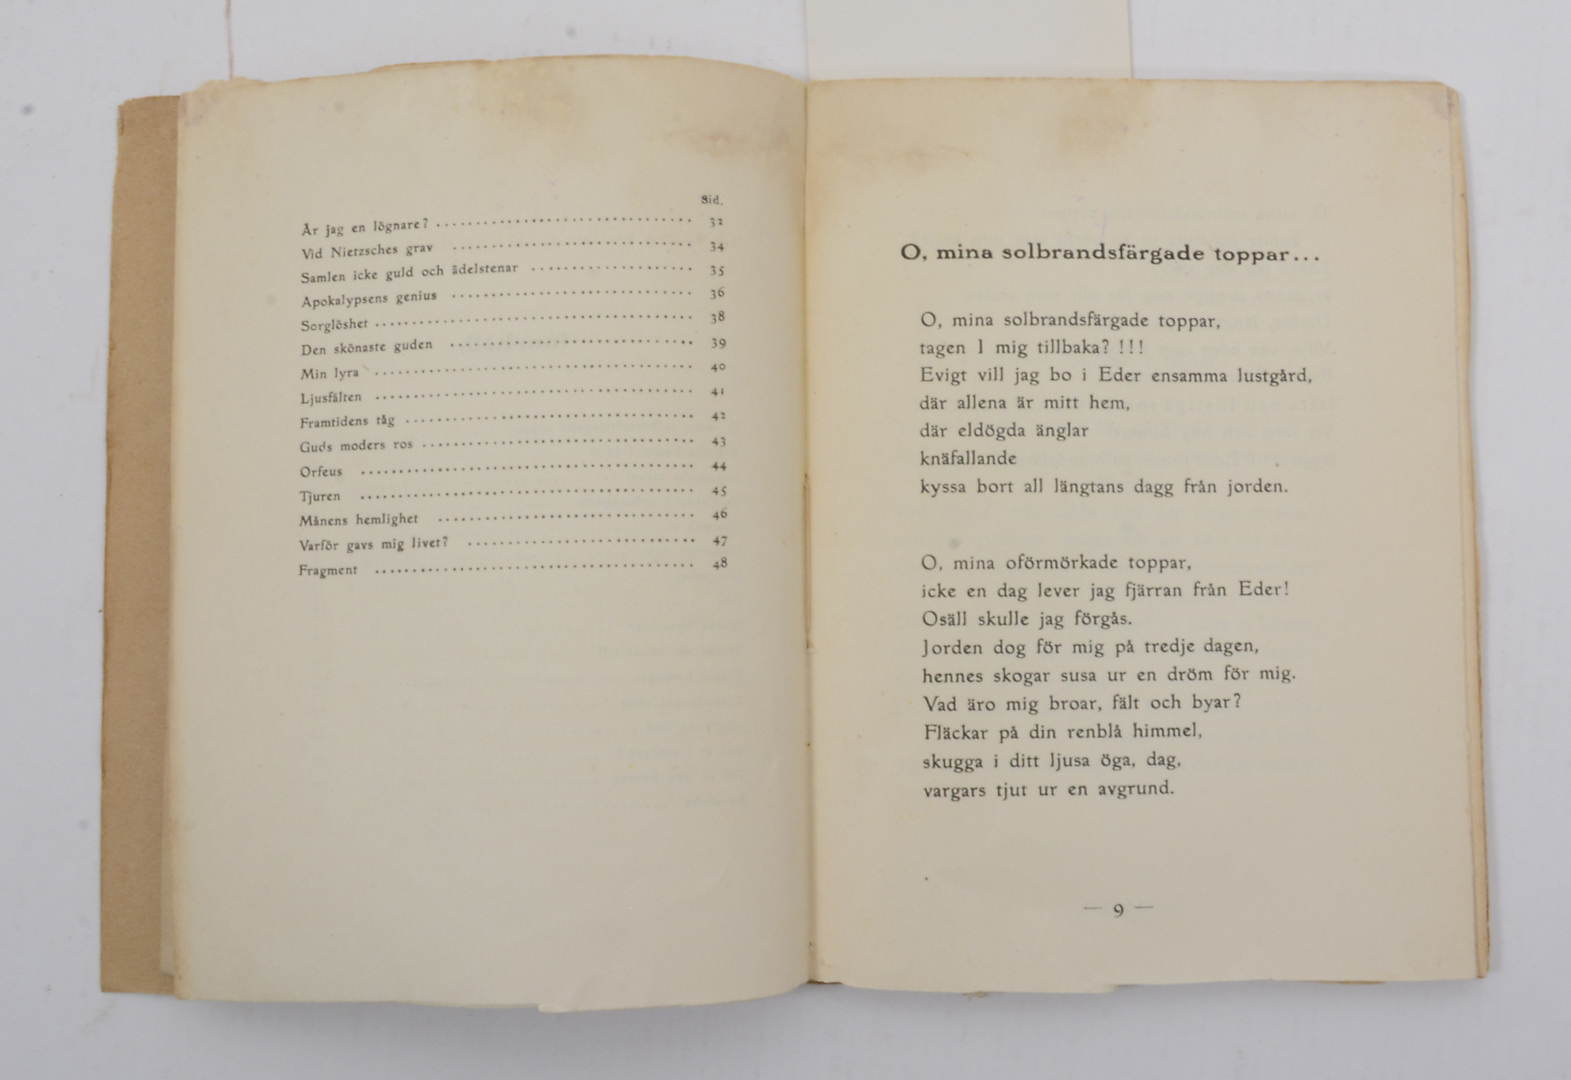 Sid.
Är jag en lögnare? 32
Vid Nietzsches grav 34
Samlen icke guld och ädelstenar 35
Apokalypsens genius 36
Sorglöshet 38
Den skönaste guden 39
Min lyra 40
Ljusfälten 41
Framtidens tåg 42
Guds moders ros 43
Orfeus 44
Tjuren 45
Månens hemlighet 46
Varför gavs mig livet? 47
Fragment 48
O, mina solbrandsfärgade toppar...
O, mina solbrandsfärgade toppar,
tagen I mig tillbaka? !!!
Evigt vill jag bo i Eder ensamma lustgård,
där allena är mitt hem,
där eldögda änglar
knäfallande
kyssa bort all längtans dagg från jorden.
O, mina oförmörkade toppar,
icke en dag lever jag fjärran från Eder!
Osäll skulle jag förgås.
Jorden dog för mig på tredje dagen,
hennes skogar susa ur en dröm för mig.
Vad äro mig broar, fält och byar?
Fläckar på din renblå himmel,
skugga i ditt ljusa öga, dag,
vargars tjut ur en avgrund.
— 9 —